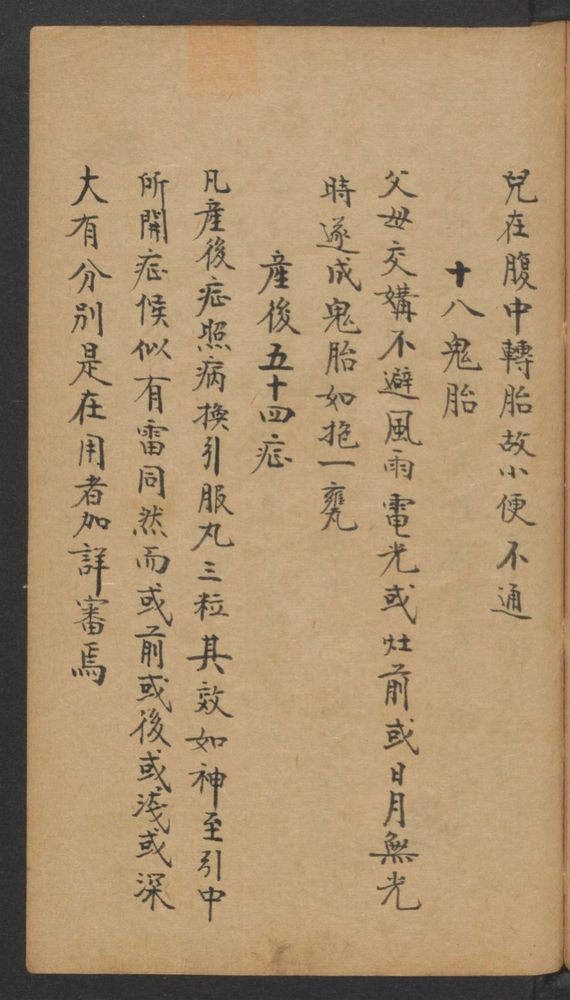 兒在腹中轉胎故小便不通
十八鬼胎
父母交媾不避風雨電光或灶前或日月無光
時遂成鬼胎如抱一甕
產後五十四症
凡產後症照病換引服丸三粒其效如神至引中
所開症候似有雷同然而或前或後或淺或深
大有分別是在用者加詳審焉